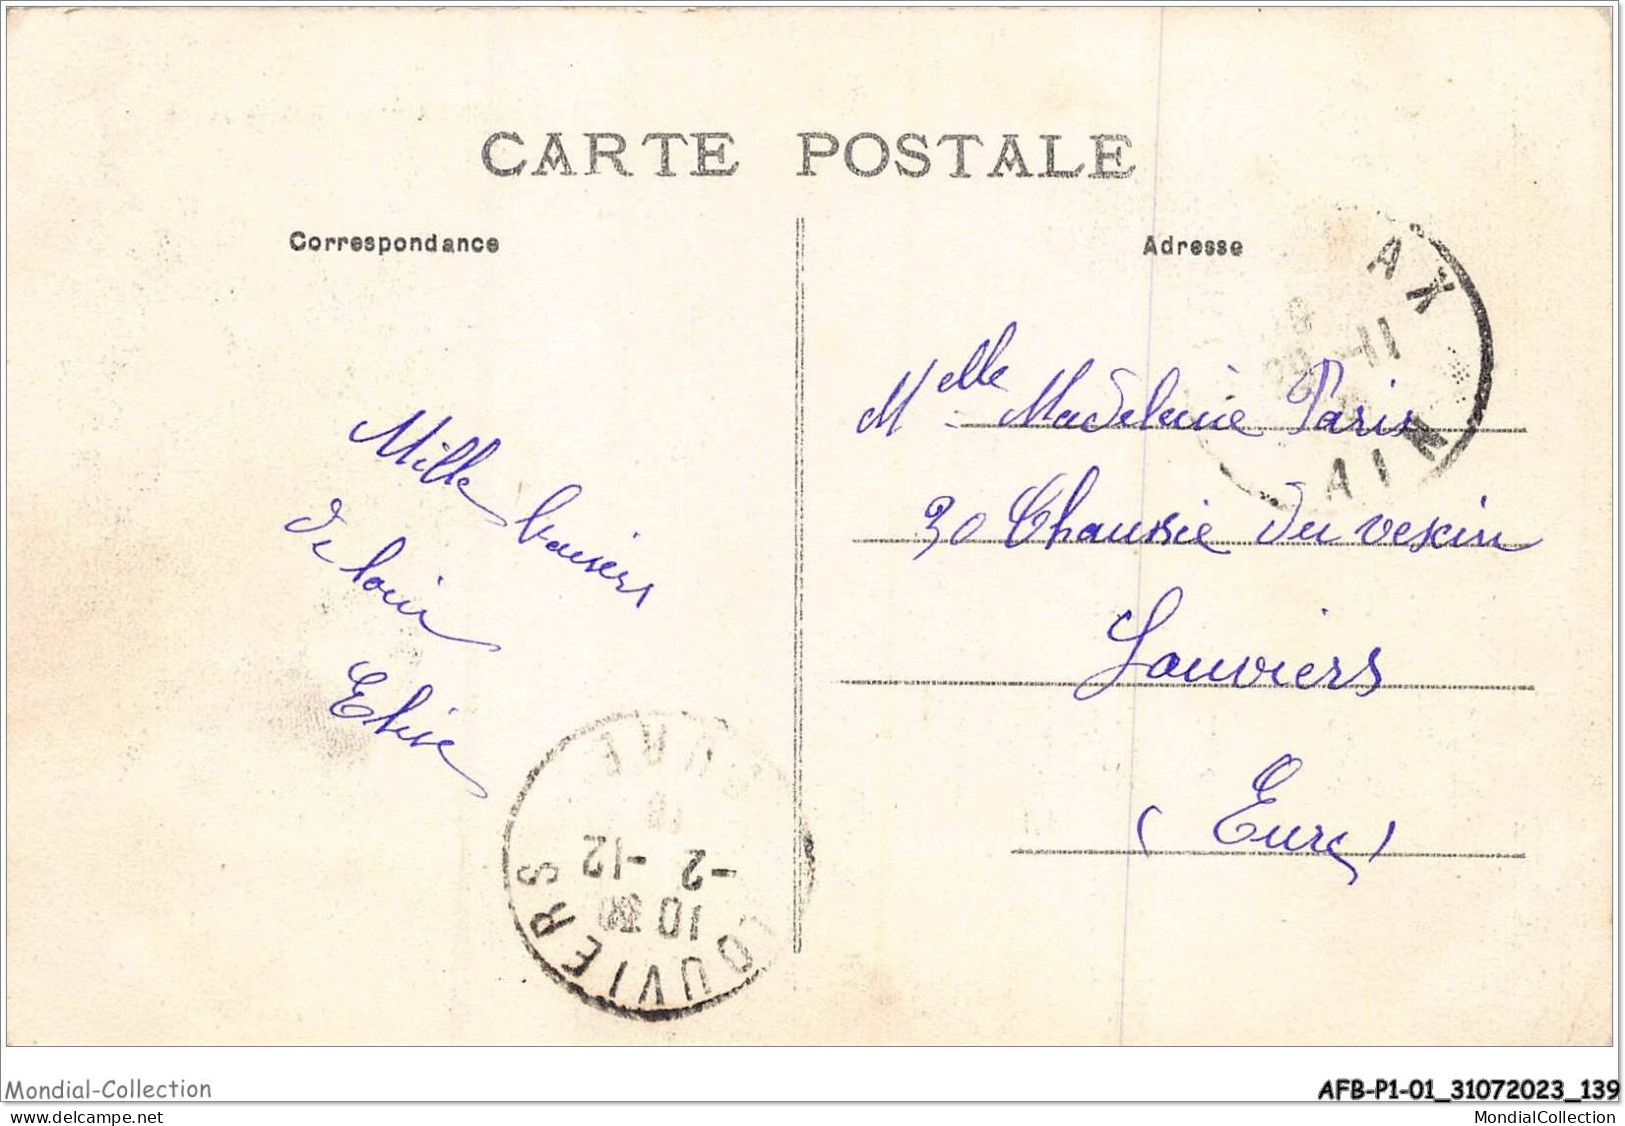 CARTE POSTALE
Correspondance
Adresse
Mille baisers
de loin
Elise
Melle Madeleine Paris
30 Chaussée du vexin
Louviers
(Eure)
AIN
LOUVIERS
EURE
10 30
-2 -12
Mondial-Collection
AFB-P1-01_31072023_139
www.delcampe.net
MondialCollection